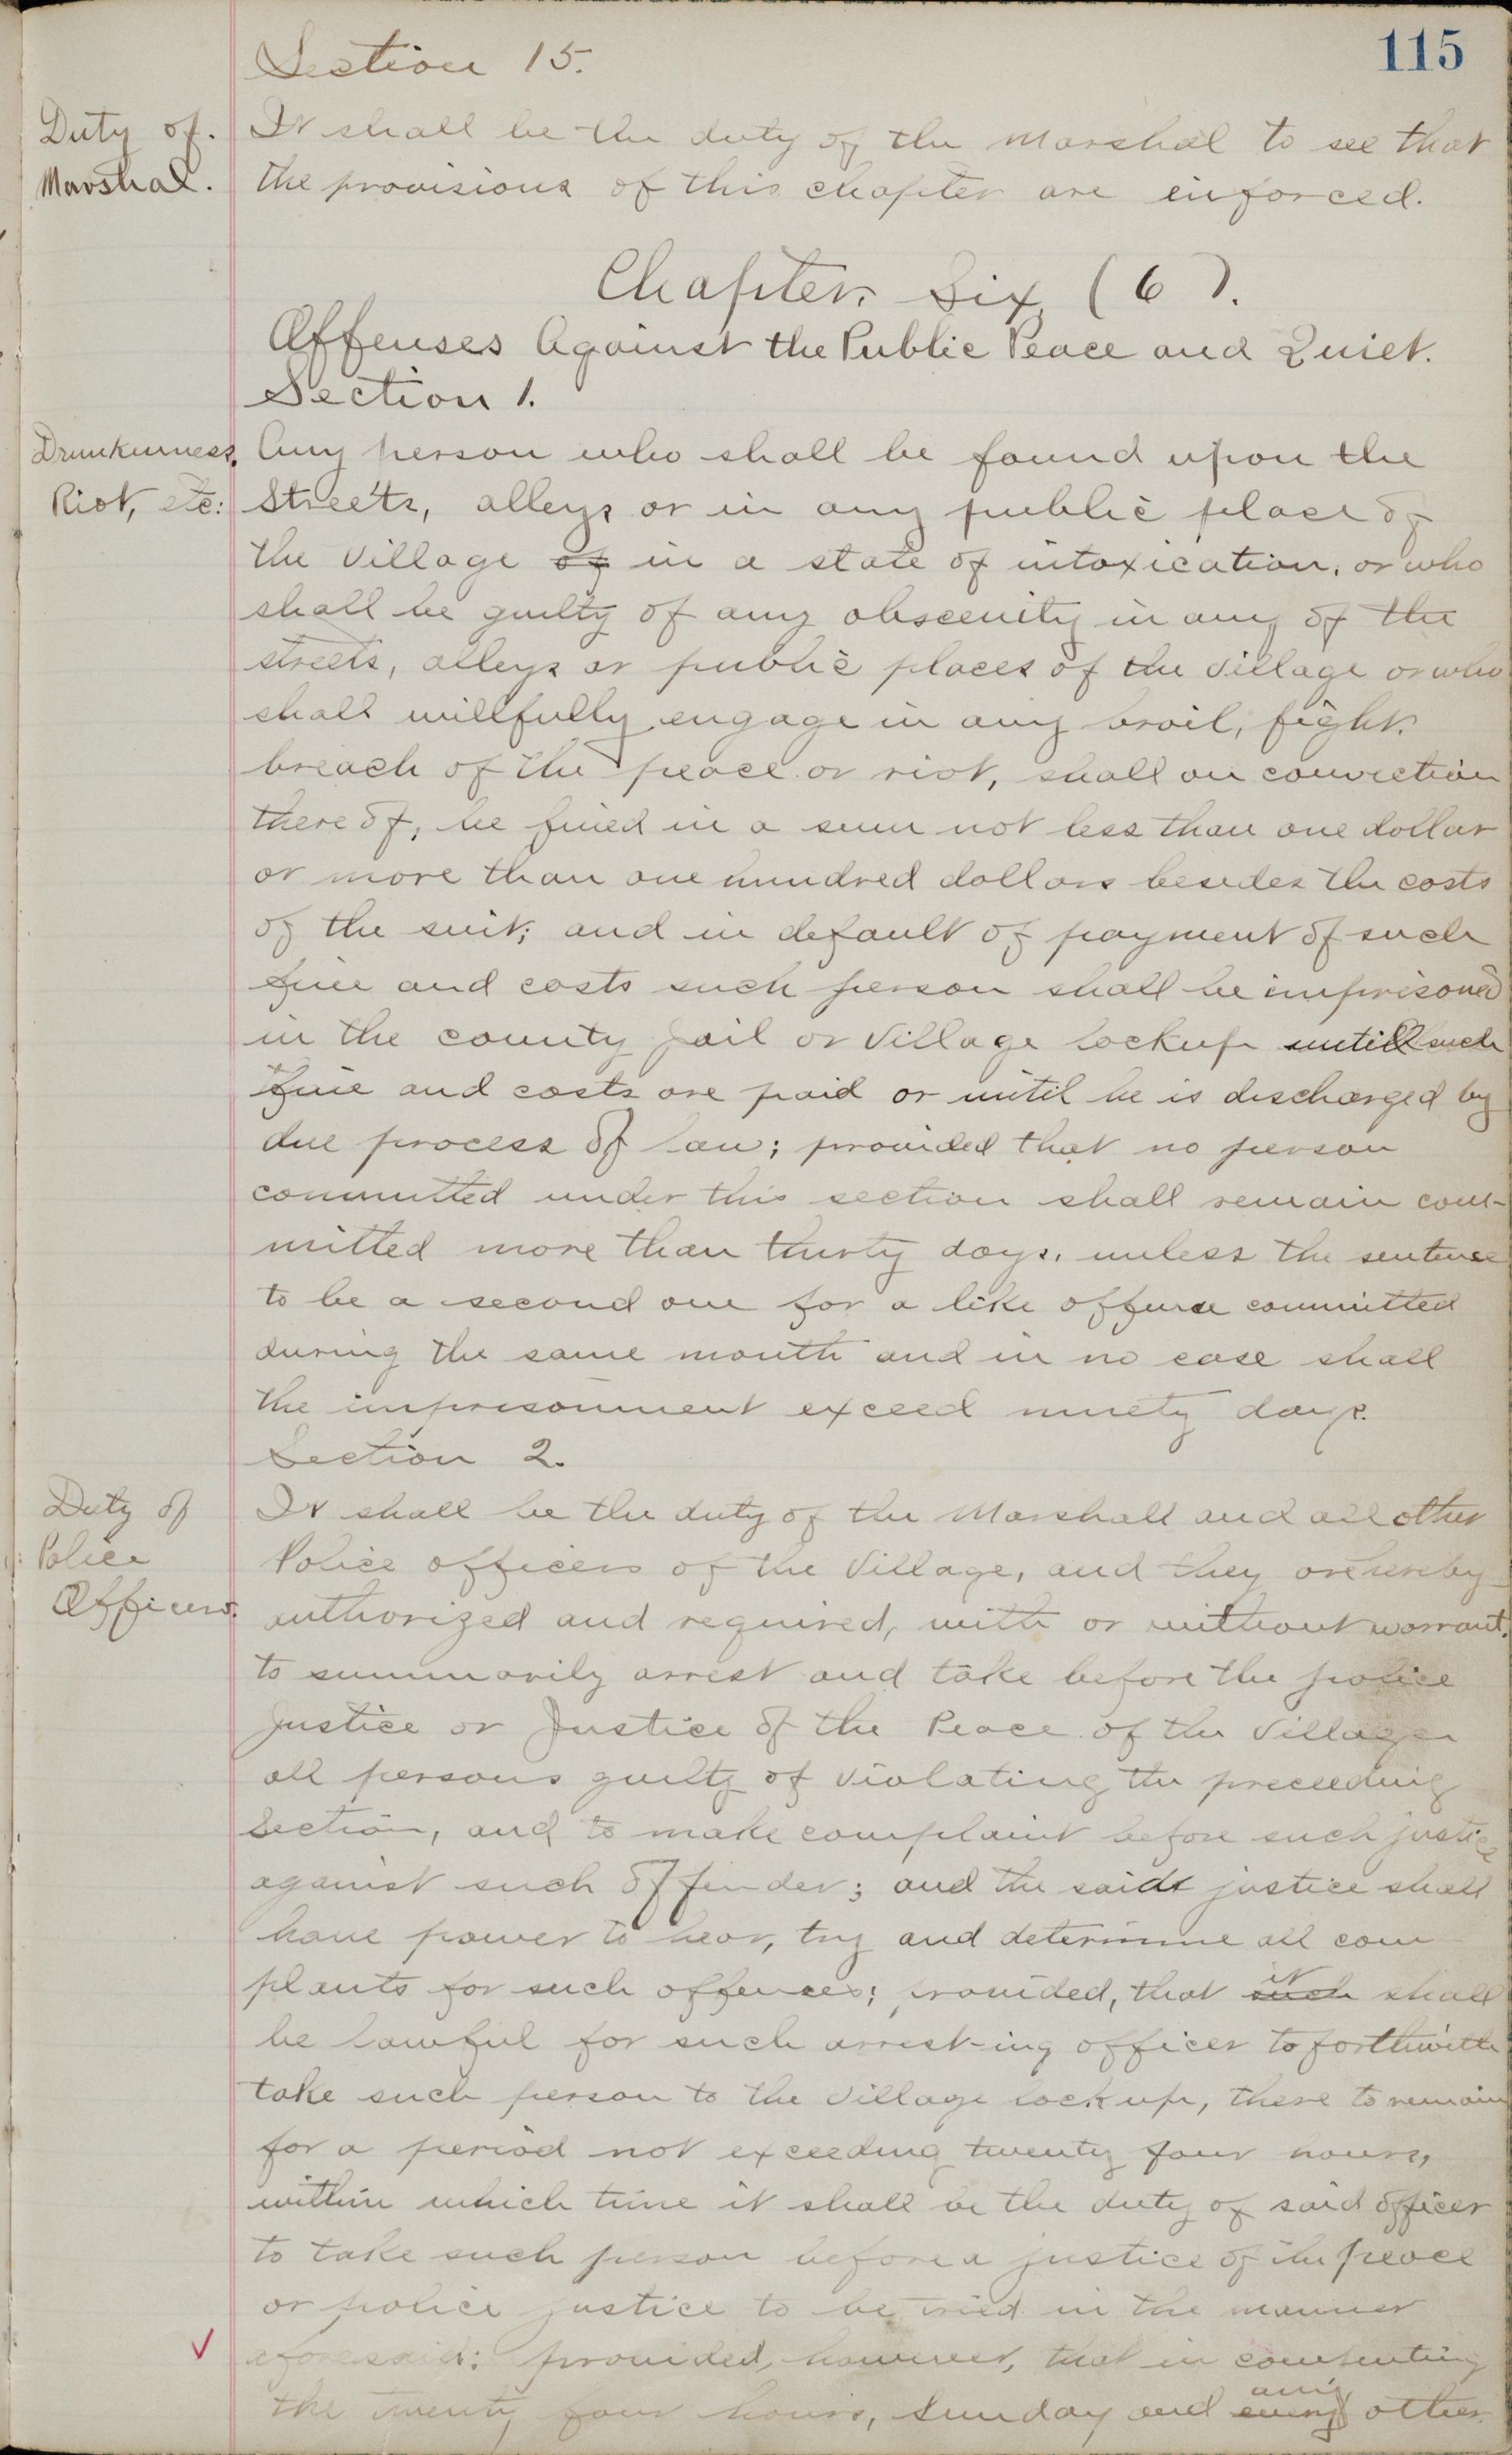 115
Section 15.
Duty of.
Marshal.
It shall be the duty of the Marshal to see that
the provisions of this chapter are enforced.
Chapter. Six. (6).
Offenses Against the Public Peace and Quiet.
Section 1.
Drunkenness,
Riot, etc:
Any person who shall be found upon the
streets, alleys or in any public place of
the village of in a state of intoxication, or who
shall be guilty of any obscenity in any of the
streets, alleys or public places of the village or who
shall willfully engage in any broil, fight.
breach of the peace or riot, shall on conviction
there of, be fined in a sum not less than one dollar
or more than one hundred dollars besides the costs
of the suit; and in default of payment of such
fine and costs such person shall be imprisoned
in the county jail or village lockup untill such
fine and costs are paid or until he is discharged by
due process of law; provided that no person
committed under this section shall remain com-
mitted more than thirty days, unless the sentence
to be a second one for a like offense committed
during the same month and in no case shall
the imprisonment exceed ninety days.
Section 2.
Duty of
Police
Officers.
It shall be the duty of the Marshall and all other
Police officers of the Village, and they are hereby
authorized and required, with or without warrant,
to summarily arrest and take before the police
justice or Justice of the Peace of the Village
all persons guilty of violating the preceeding
Section, and to make complaint before such justice
against such offender; and the said justice shall
have power to hear, try and determine all com
plants for such offences; provided, that such it shall
be lawful for such arresting officer to forthwith
take such person to the village lock up, there to remain
for a period not exceeding twenty four hours,
within which time it shall be the duty of said officer
to take such person before a justice of the peace
or police justice to be tried in the manner
aforesaid: provided, however, that in computing
the twenty four hours, Sunday and every any other